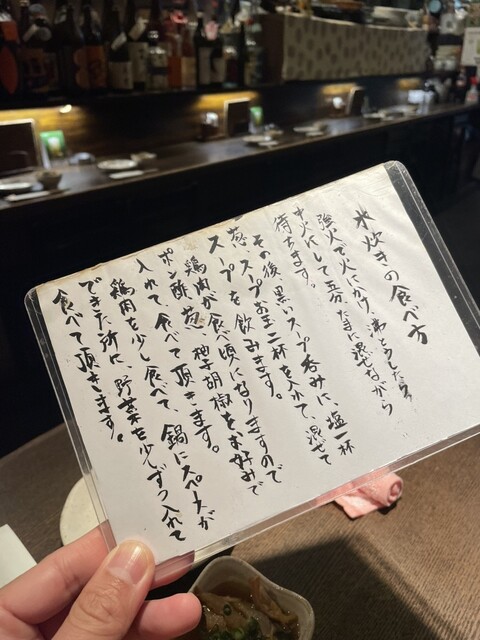 水炊きの食べ方
強火で火にかけ、沸とうしたら
中火にして五分、たまに混ぜながら
待ちます。
その後、黒いスープ呑みに、塩一杯
葱、スープお玉二杯を入れて、混ぜて
スープを飲みます。
鶏肉が食べ頃になりますので
ポン酢、葱、柚子胡椒をお好みで
入れて、食べて頂きます。
鶏肉を少し食べて、鍋にスペースが
できた所に、野菜も少しずつ入れて
食べて頂きます。